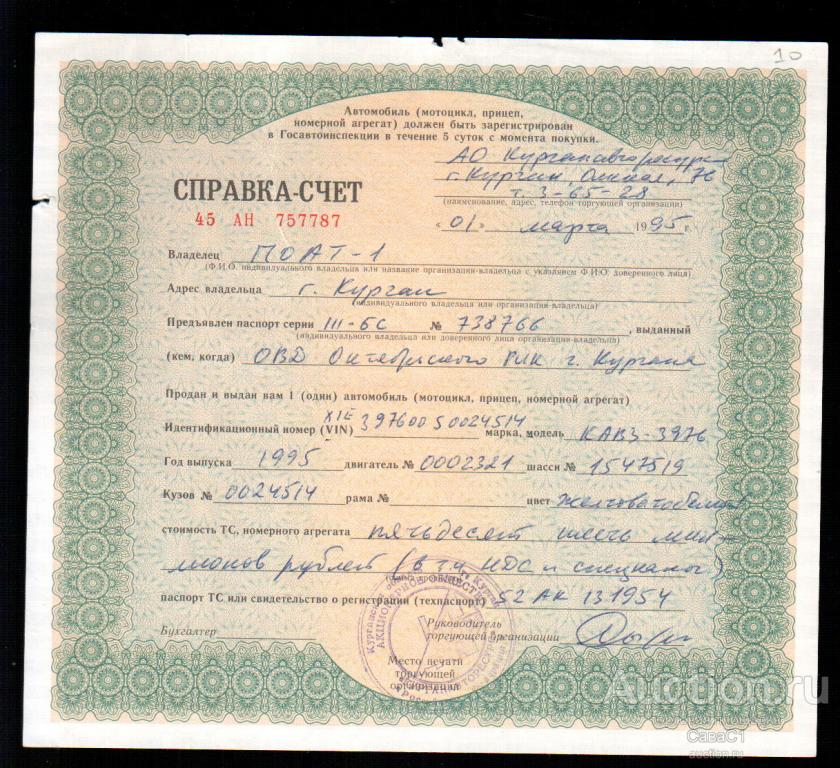 10
Автомобиль (мотоцикл, прицеп,
номерной агрегат) должен быть зарегистрирован
в Госавтоинспекции в течение 5 суток с момента покупки.
АО Курганавторесурс
г. Курган, Омская, 76
т. 3-65-28
(наименование, адрес, телефон торгующей организации)
СПРАВКА-СЧЕТ
45 АН 757787
«01» марта 1995 г.
Владелец ПОАТ-1
(Ф.И.О. индивидуального владельца или название организации-владельца с указанием Ф.И.О. доверенного лица)
Адрес владельца г. Курган
(индивидуального владельца или организации-владельца)
Предъявлен паспорт серии III-БС № 738766, выданный
(индивидуального владельца или доверенного лица организации-владельца)
(кем, когда) ОВД Октябрьского РИК г. Кургана
Продан и выдан вам 1 (один) автомобиль (мотоцикл, прицеп, номерной агрегат)
Идентификационный номер (VIN) X1E397600S0024514 марка, модель КАВЗ-3976
Год выпуска 1995 двигатель № 0002321 шасси № 1547519
Кузов № 0024514 рама № цвет желтоватобелый
стоимость ТС, номерного агрегата пятьдесят шесть мил-
лионов рублей (в т.ч. НДС и спецналог)
паспорт ТС или свидетельство о регистрации (техпаспорт) 52 АК 131954
Бухгалтер Руководитель
торгующей организации
Место печати
торгующей
организации
АКЦИОНЕРНОЕ ОБЩЕСТВО
г. Курган
Auction.ru
СаваС1
auction.ru